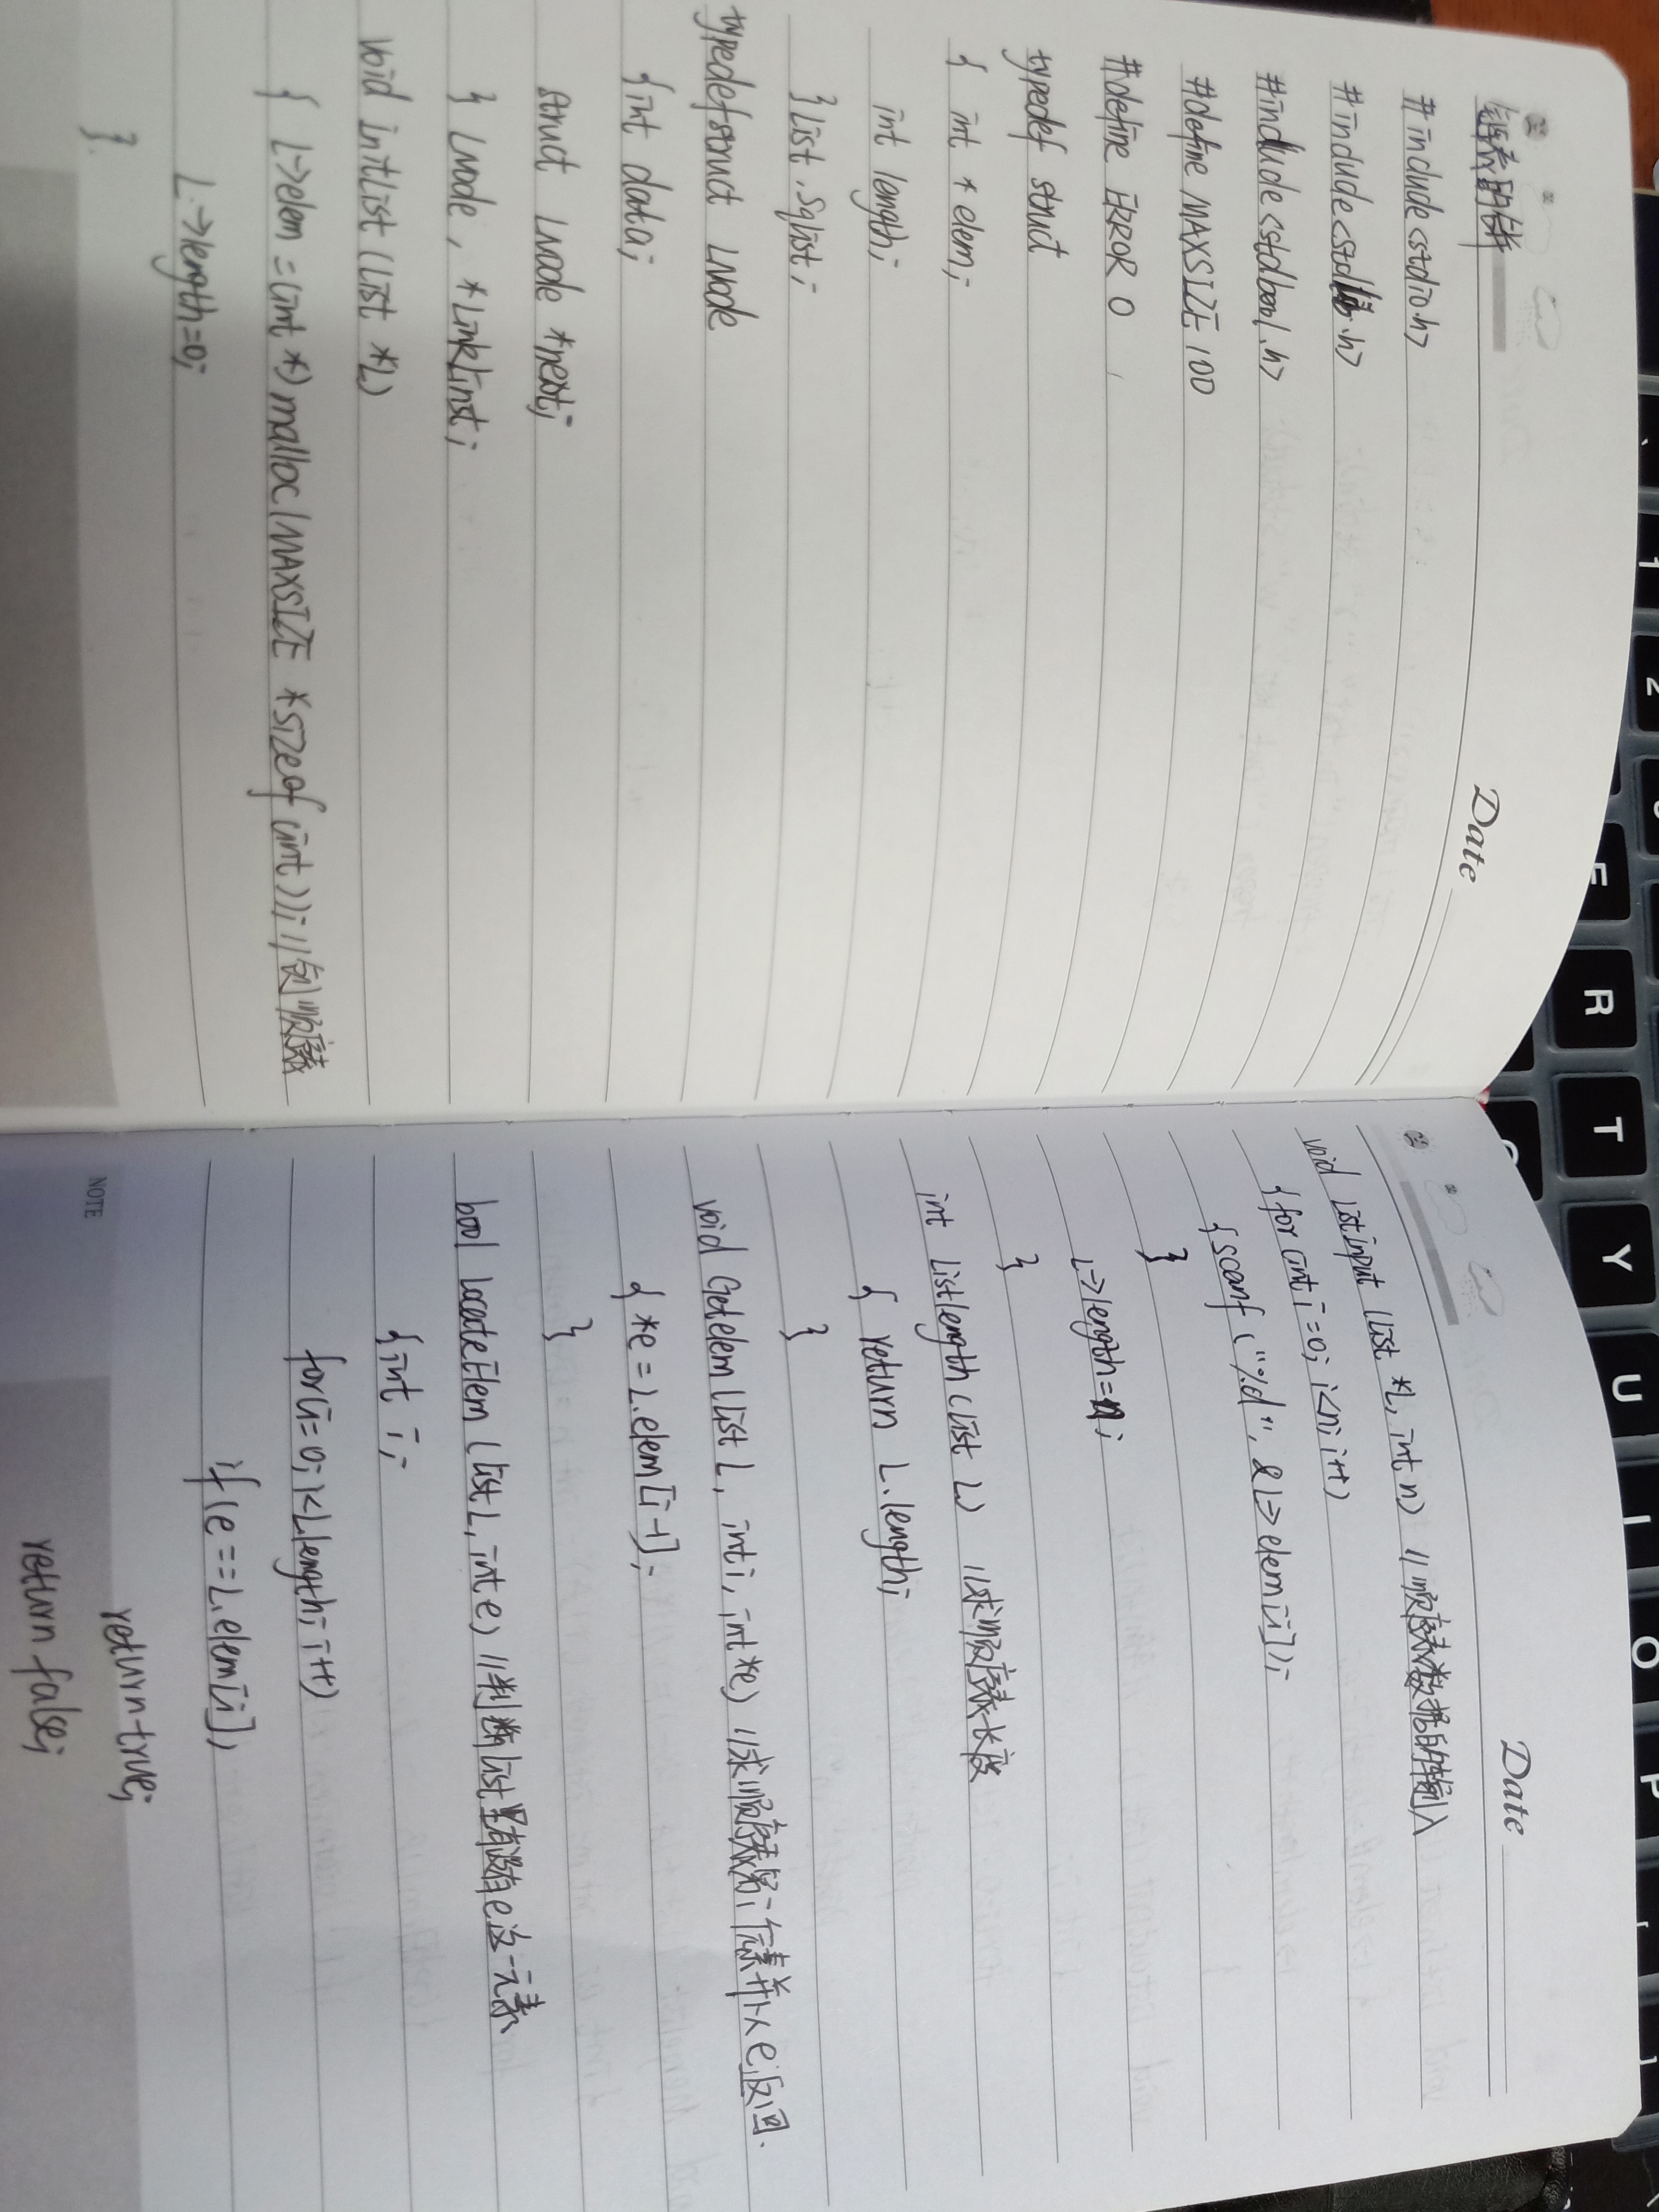 Date
线性表的合并
#include<stdio.h>
#include<stdlib.h>
#include<stdbool.h>
#define MAXSIZE 100
#define ERROR 0
typedef struct
{ int *elem;
int length;
}List,Sqlist;
typedef struct LNode
{int data;
struct LNode *next;
} LNode, *LinkLinst;
void InitList(List *L)
{ L->elem =(int *)malloc(MAXSIZE *sizeof(int)); //创顺序表
L->length=0;
}.
Date
void listinput(List *L,int n) //顺序表数据的输入
{for(int i=0; i<n; i++)
{scanf("%d", &L->elem[i]);
}
L->length=n;
}
int Listlength(List L) //求顺序表长度
{ return L.length;
}
void Getelem(List L, int i, int *e) //求顺序表第i个元素并以e返回.
{ *e = L.elem[i-1];
}
bool LocateElem(List L, int e) //判断list里有没有e这一元素
{int i;
for(i=0; i<L.length; i++)
if(e==L.elem[i])
return true;
return false;
NOTE